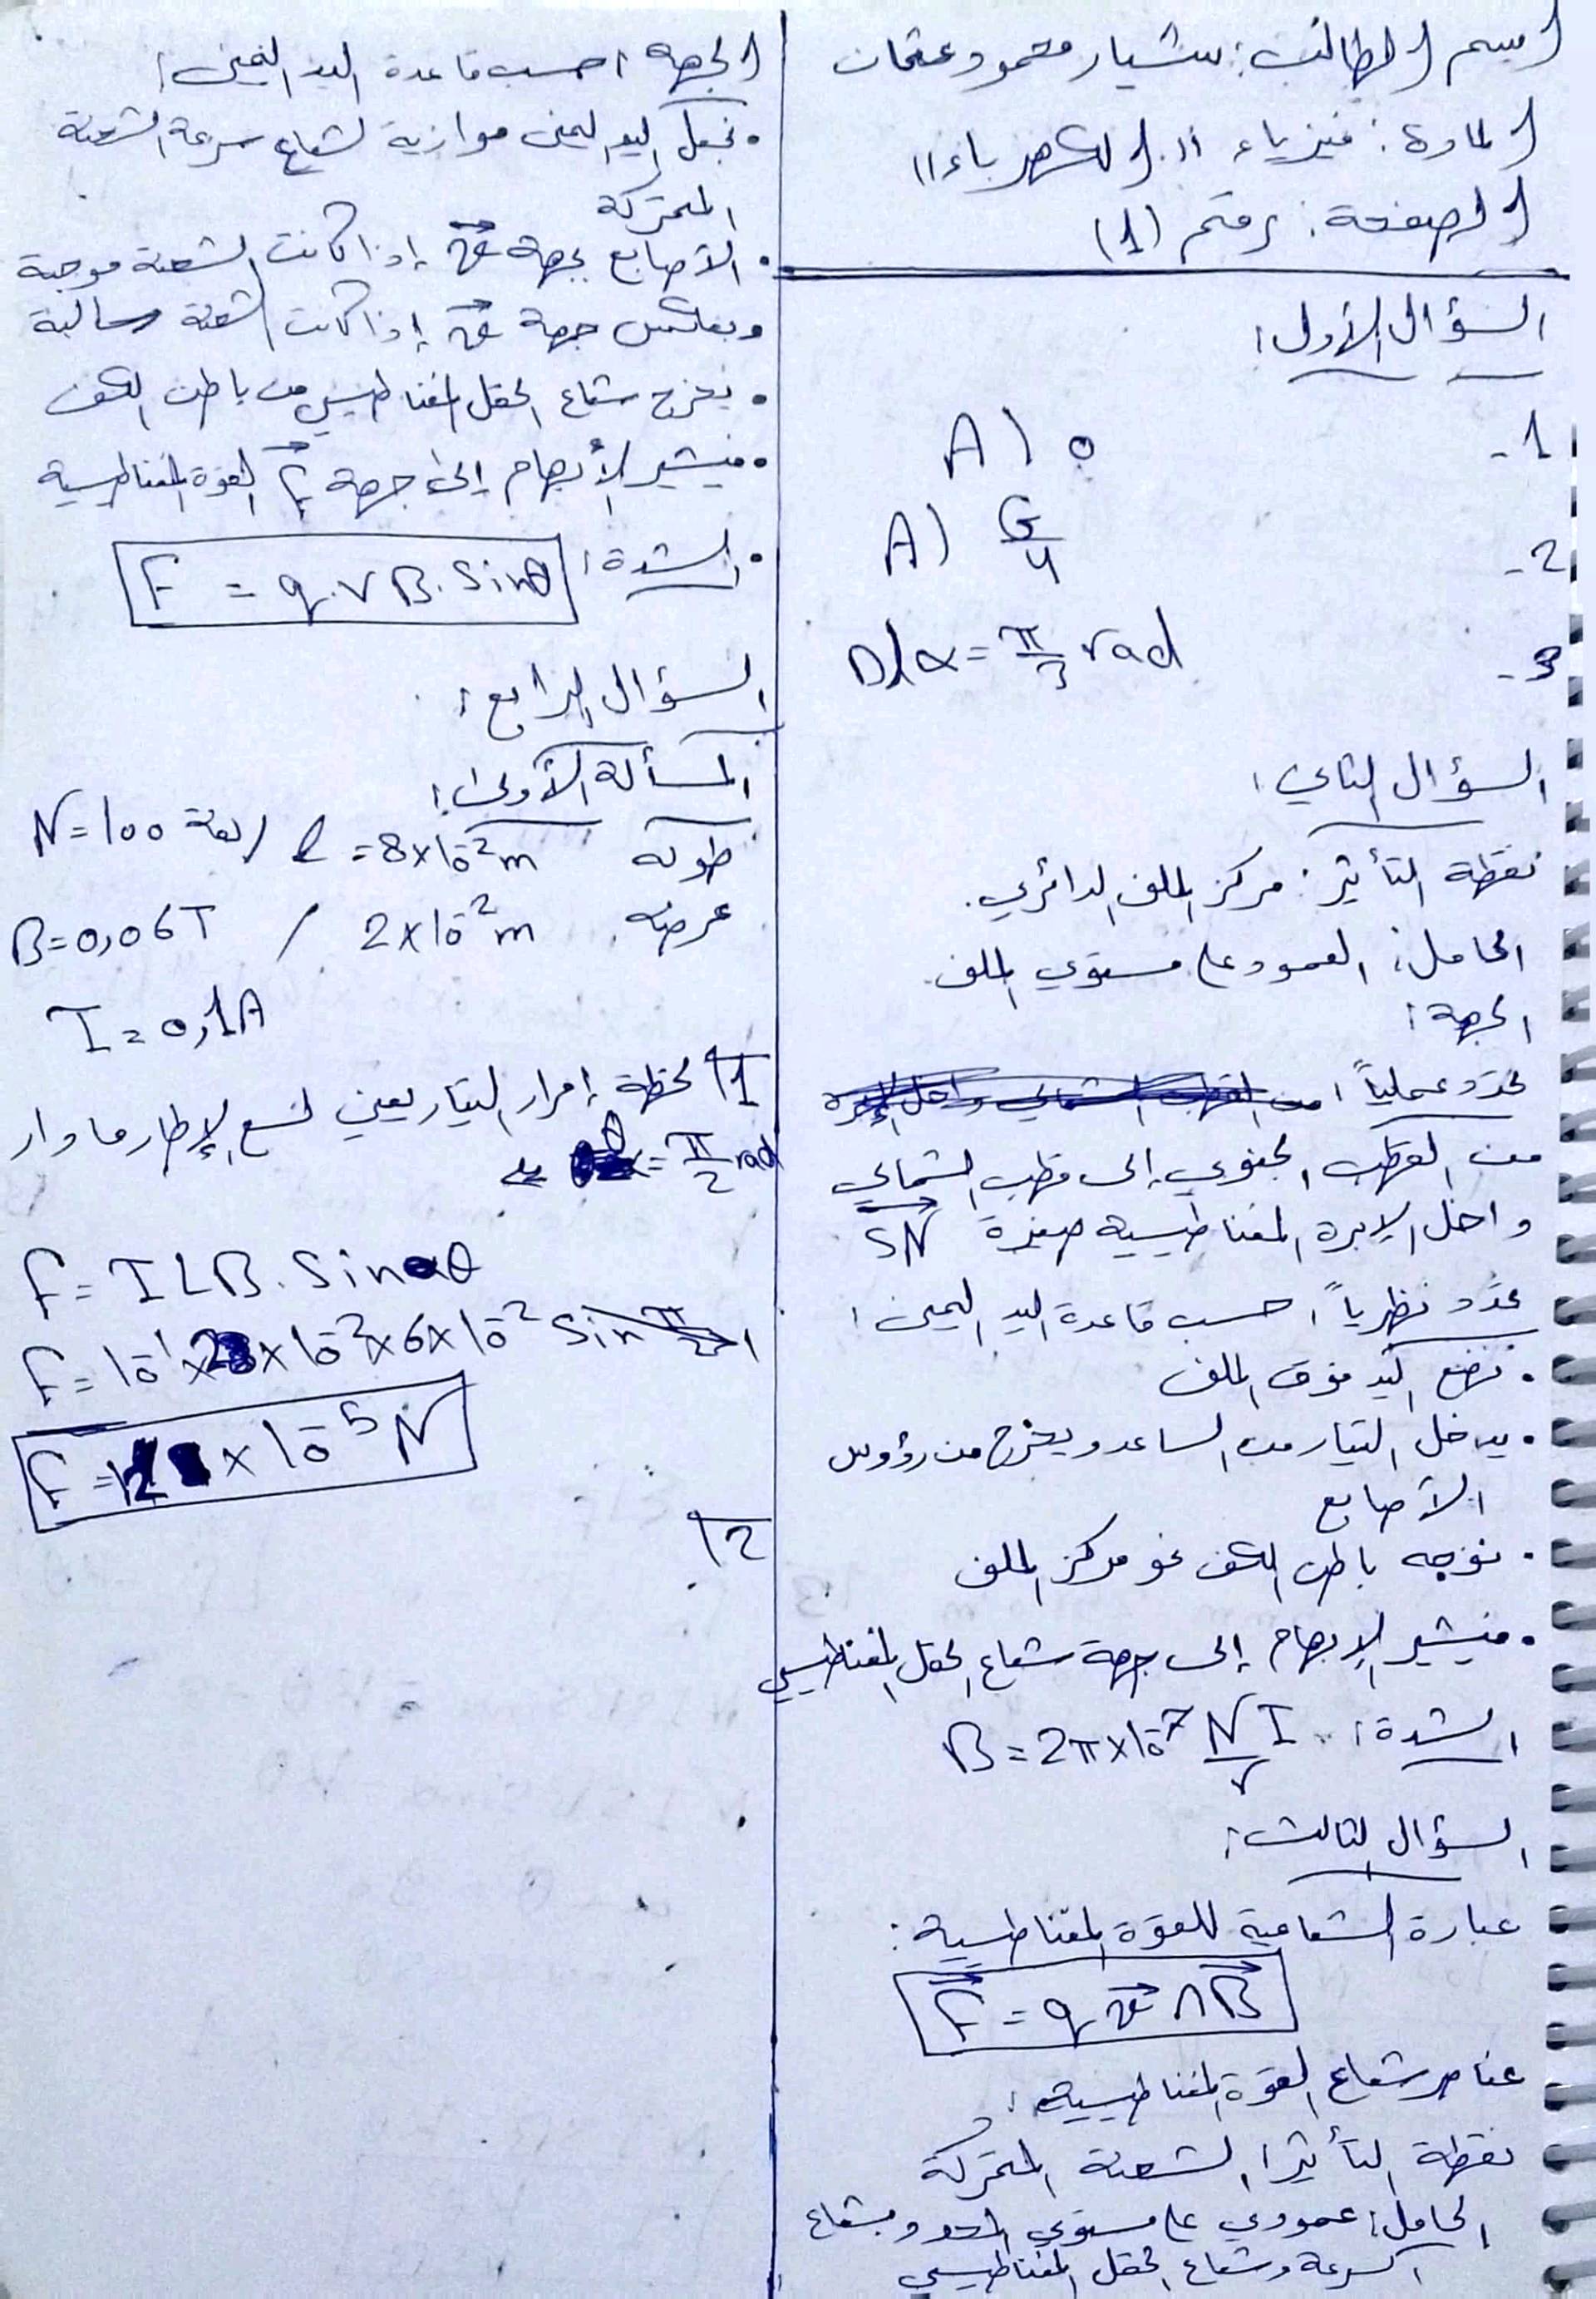 اسم الطالب: سشيار محمود عثمان
المادة: فيزياء "الكهرباء"
الصفحة: رقم (1)
السؤال الأول:
1- A) 0
2- A) G/4
3- D) α = π/3 rad
السؤال الثاني:
نقطة التأثير: مركز الملف الدائري.
الحامل: العمود على مستوي الملف
الجهة:
تحدد عملياً: من القطب الشمالي داخل الإبرة
من القطب الجنوبي إلى قطب الشمالي
داخل الإبرة المغناطيسية صغيرة SN
تحدد نظرياً: حسب قاعدة اليد اليمنى:
• نضع اليد فوق الملف
• يدخل التيار من الساعد ويخرج من رؤوس
الأصابع
• نوجه باطن الكف نحو مركز الملف
• فيشير الإبهام إلى جهة شعاع الحقل المغناطيسي
الشدة: B = 2π×10⁻⁷ NI/r
السؤال الثالث:
عبارة الشعاعية للقوة المغناطيسية:
F = q v ∧ B
عناصر شعاع القوة المغناطيسية:
نقطة التأثير: الشحنة المتحركة
الحامل: عمودي على مستوي المحدد بشعاع
السرعة وشعاع الحقل المغناطيسي
الجهة: حسب قاعدة اليد اليمنى:
• نجعل اليد اليمنى موازية لشعاع سرعة الشحنة
المتحركة
• الأصابع بجهة v إذا كانت الشحنة موجبة
وبعكس جهة v إذا كانت الشحنة سالبة
• يخرج شعاع الحقل المغناطيسي من باطن الكف
• فيشير الأبهام إلى جهة F القوة المغناطيسية
• الشدة: F = q.v B. sinθ
السؤال الرابع:
المسألة الأولى:
طوله L = 8×10⁻² m / N = 100 لفة
عرضه 2×10⁻² m / B = 0,06T
I = 0,1A
1) لحظة إمرار التيار يعني لسع الإطار ما دار
θ = π/2 rad
F = I L B. sin θ
F = 10⁻¹ × 2 × 10⁻² × 6 × 10⁻² sin π/2 1
F = 12 × 10⁻⁵ N
2)